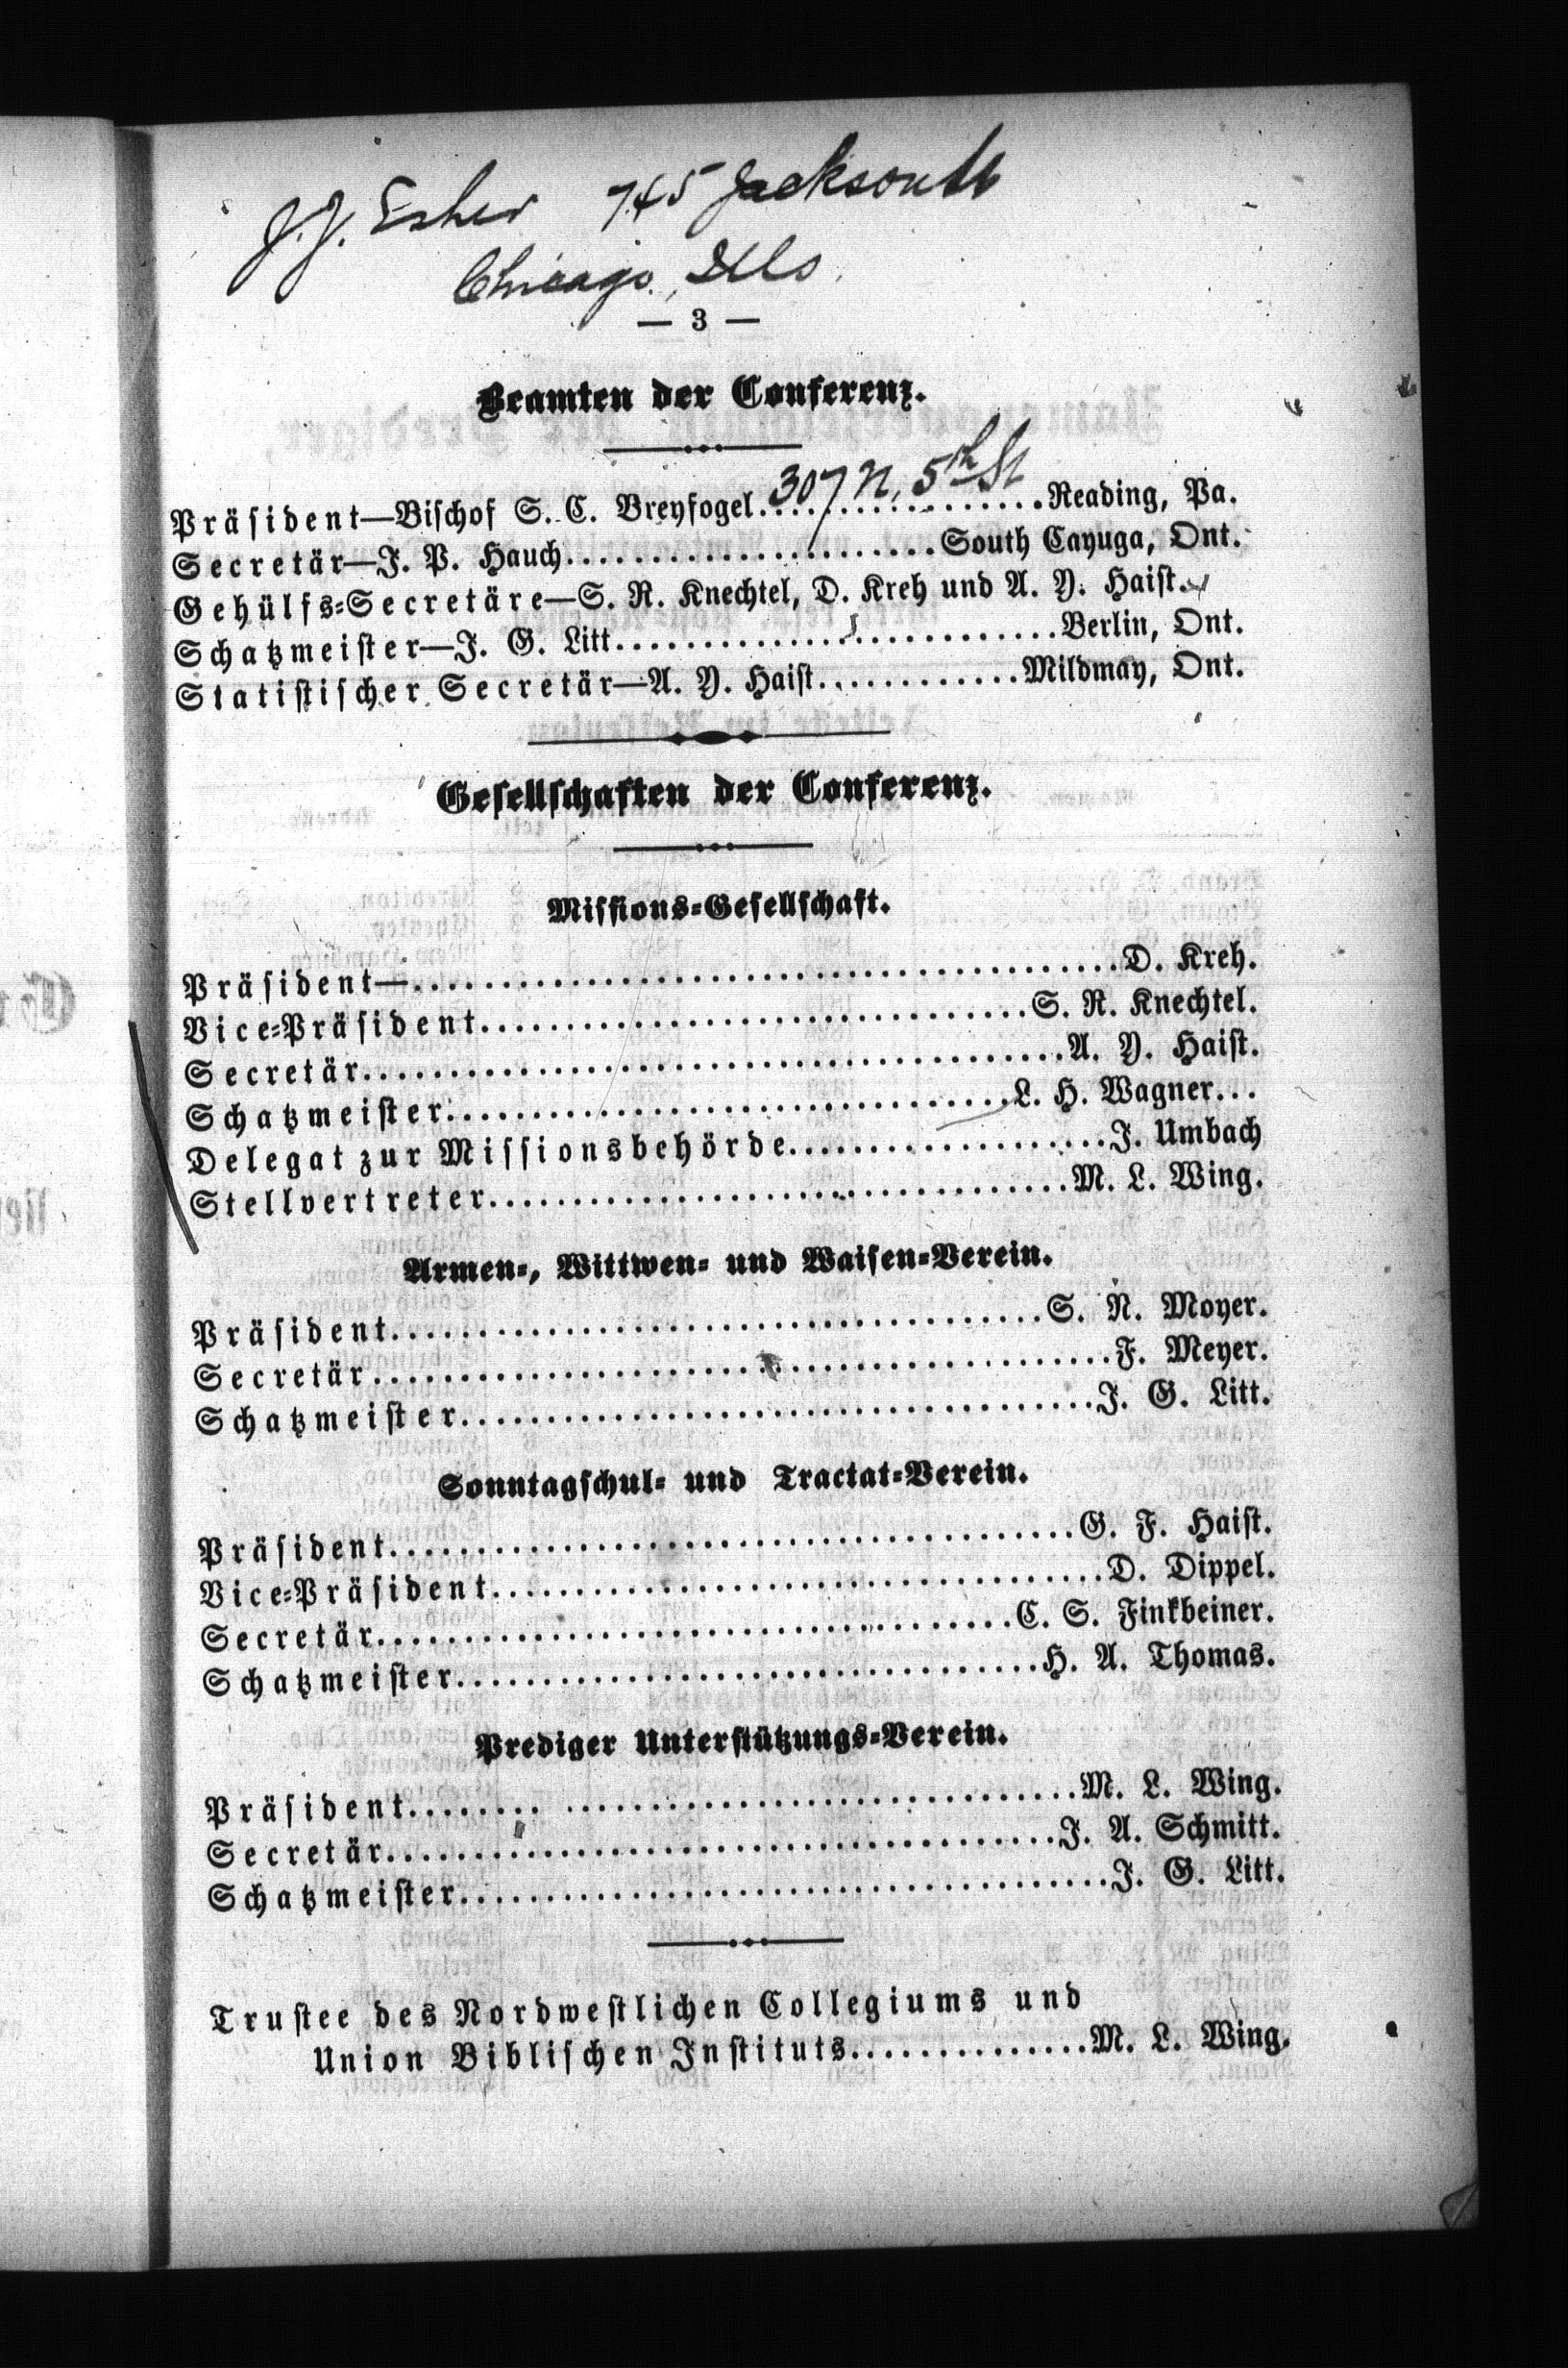 J. J. Esher 745 Jackson St
Chicago, Ills.
— 3 —
Beamten der Conferenz.
307 N. 5th St
Präsident—Bischof S. C. Breyfogel....................Reading, Pa.
Secretär—J. P. Hauch......................South Cayuga, Ont.
Gehülfs-Secretäre—S. R. Knechtel, D. Kreh und A. Y. Haist.
Schatzmeister—J. G. Litt..............................Berlin, Ont.
Statistischer Secretär—A. Y. Haist.............Mildmay, Ont.
Gesellschaften der Conferenz.
Missions-Gesellschaft.
Präsident—................................................D. Kreh.
Vice-Präsident......................................S. R. Knechtel.
Secretär................................................A. Y. Haist.
Schatzmeister.......................................L. H. Wagner...
Delegat zur Missionsbehörde......................J. Umbach
Stellvertreter........................................M. L. Wing.
Armen-, Wittwen- und Waisen-Verein.
Präsident.............................................S. N. Moyer.
Secretär..................................................F. Meyer.
Schatzmeister............................................J. G. Litt.
Sonntagschul- und Tractat-Verein.
Präsident...............................................G. F. Haist.
Vice-Präsident..........................................D. Dippel.
Secretär............................................C. S. Finkbeiner.
Schatzmeister........................................H. A. Thomas.
Prediger Unterstützungs-Verein.
Präsident.............................................M. L. Wing.
Secretär..............................................J. A. Schmitt.
Schatzmeister............................................J. G. Litt.
Trustee des Nordwestlichen Collegiums und
Union Biblischen Instituts.................M. L. Wing.